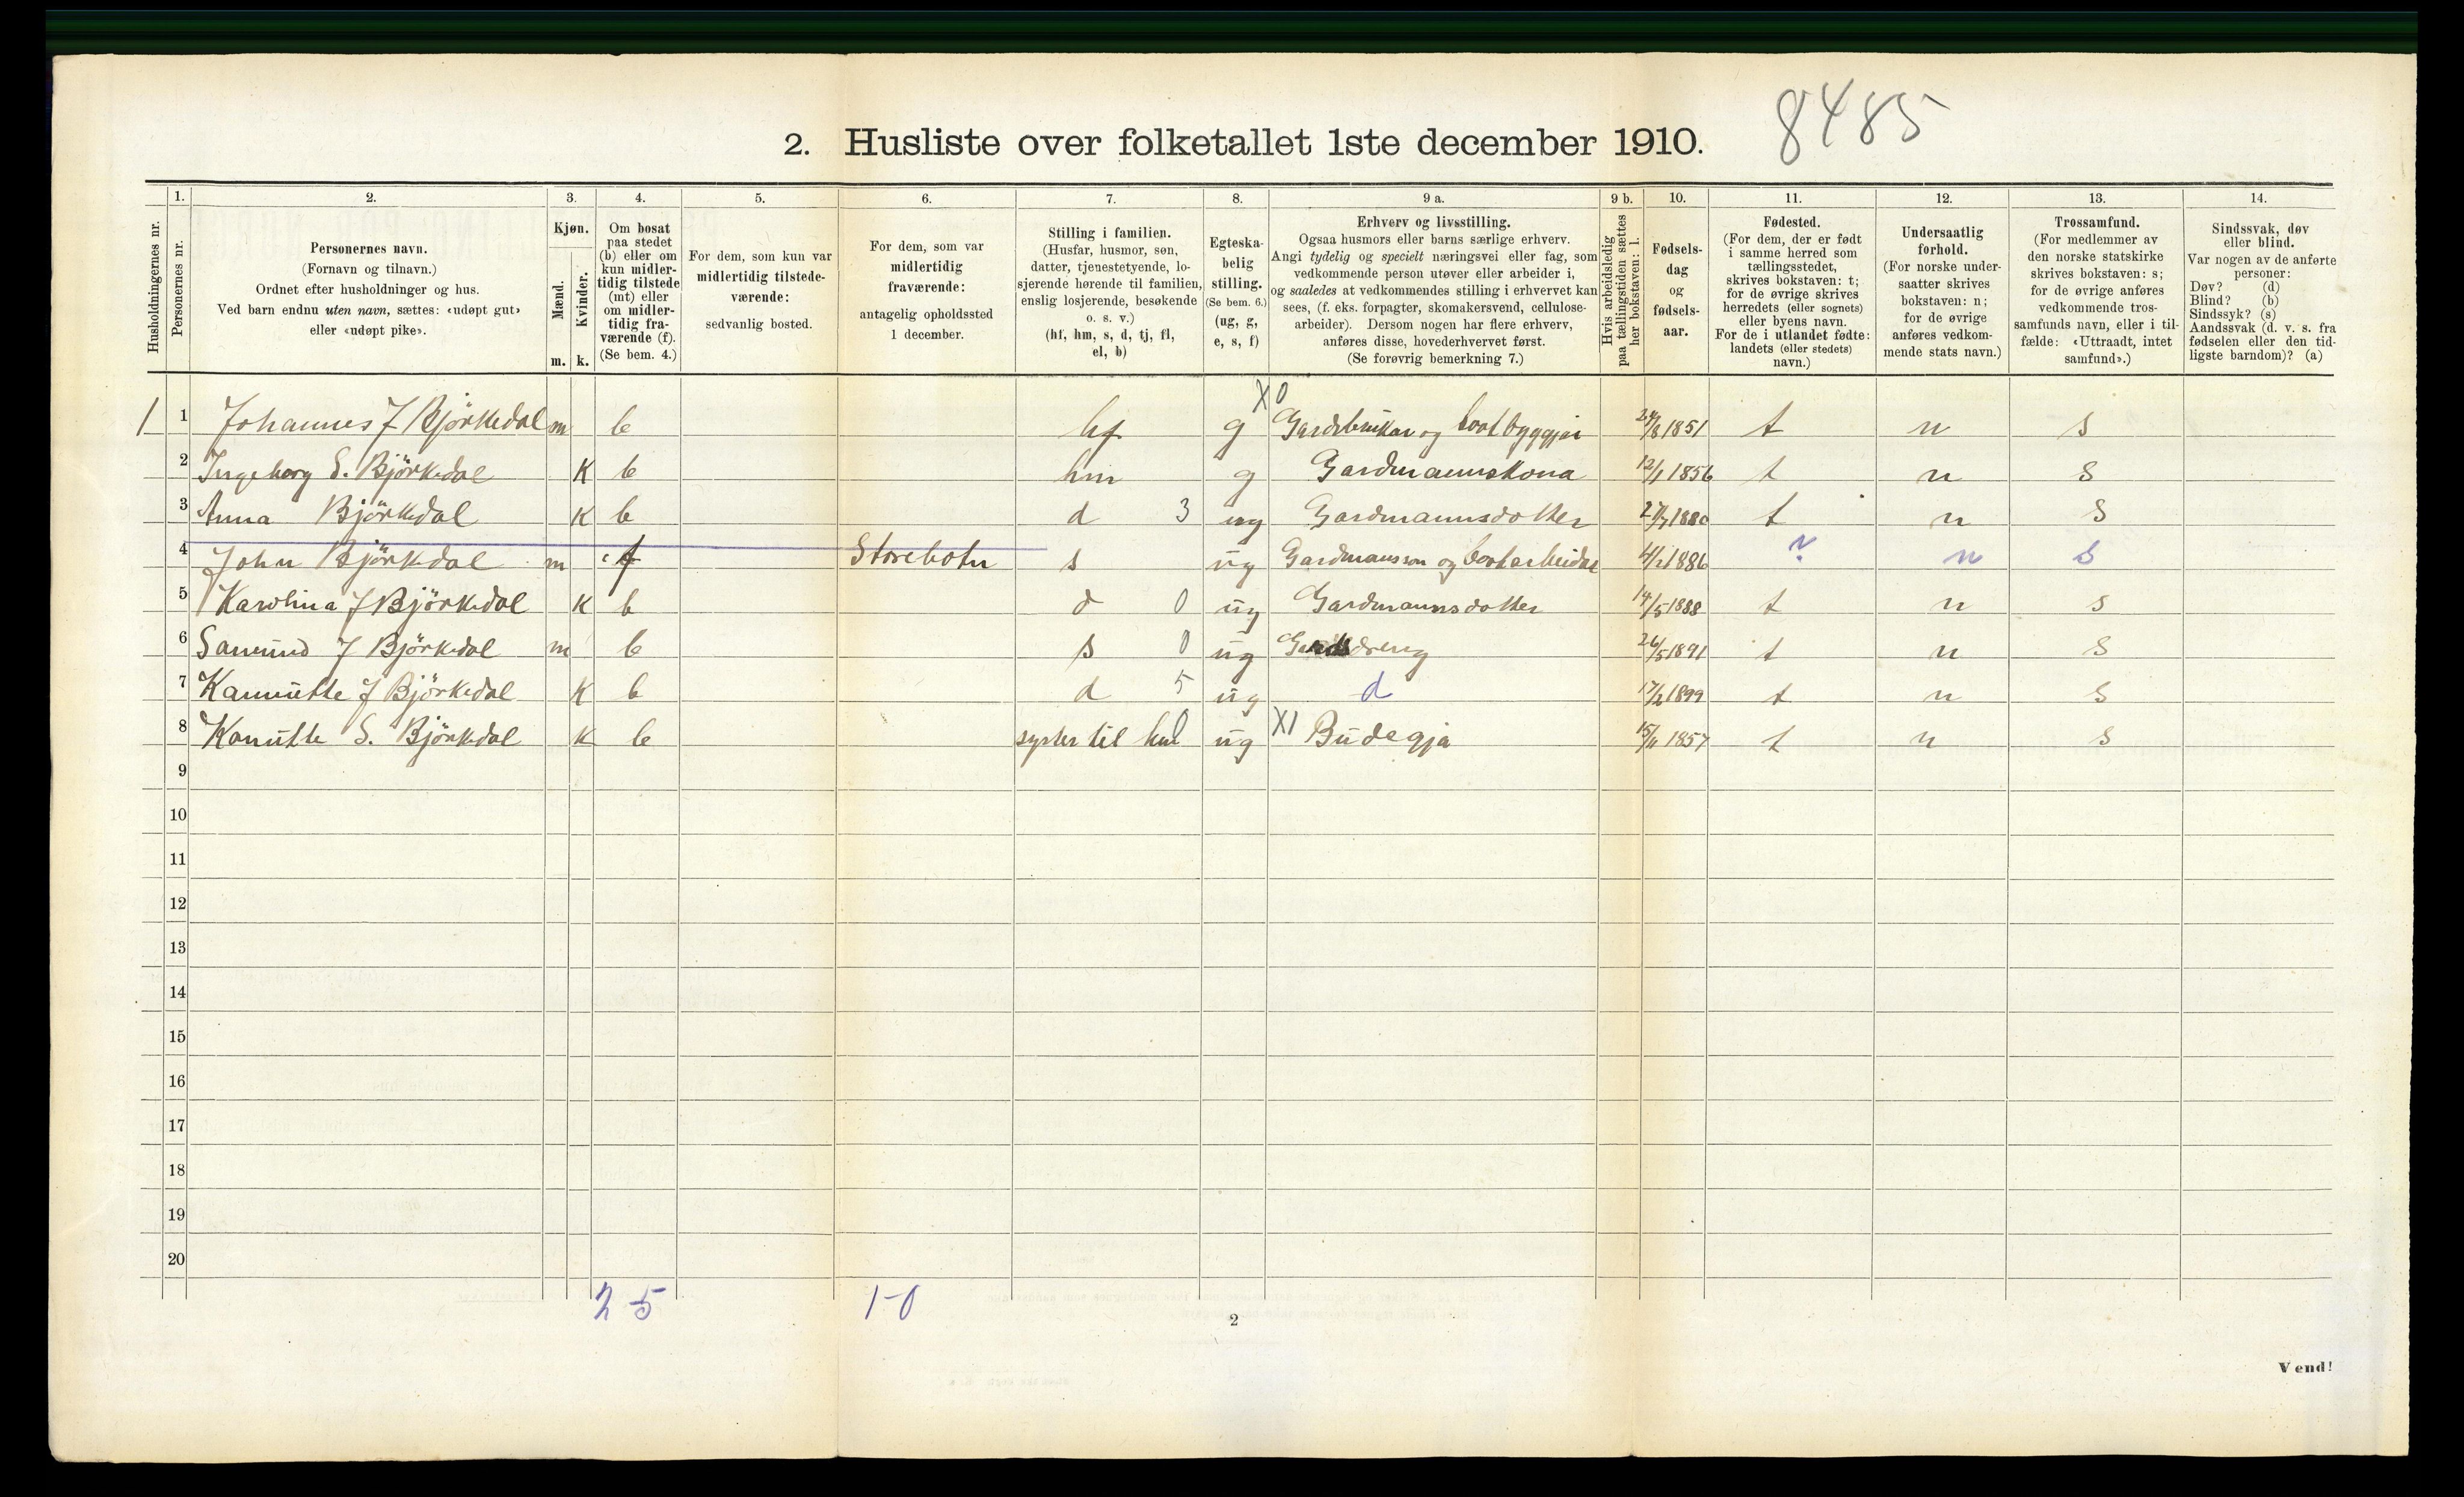 8485
2. Husliste over folketallet 1ste december 1910.
Husholdningernes nr.
1. Personernes nr.
2. Personernes navn. (Fornavn og tilnavn.) Ordnet efter husholdninger og hus. Ved barn endnu uten navn, sættes: «udøpt gut» eller «udøpt pike».
3. Kjøn. Mænd. m. Kvinder. k.
4. Om bosat paa stedet (b) eller om kun midlertidig tilstede (mt) eller om midlertidig fraværende (f). (Se bem. 4.)
5. For dem, som kun var midlertidig tilstedeværende: sedvanlig bosted.
6. For dem, som var midlertidig fraværende: antagelig opholdssted 1 december.
7. Stilling i familien. (Husfar, husmor, søn, datter, tjenestetyende, losjerende hørende til familien, enslig losjerende, besøkende o. s. v.) (hf, hm, s, d, tj, fl, el, b)
8. Egteskabelig stilling. (Se bem. 6.) (ug, g, e, s, f)
9 a. Erhverv og livsstilling. Ogsaa husmors eller barns særlige erhverv. Angi tydelig og specielt næringsvei eller fag, som vedkommende person utøver eller arbeider i, og saaledes at vedkommendes stilling i erhvervet kan sees, (f. eks. forpagter, skomakersvend, cellulosearbeider). Dersom nogen har flere erhverv, anføres disse, hovederhvervet først. (Se forøvrig bemerkning 7.)
9 b. Hvis arbeidsledig paa tællingstiden sættes her bokstaven: l.
10. Fødselsdag og fødselsaar.
11. Fødested. (For dem, der er født i samme herred som tællingsstedet, skrives bokstaven: t; for de øvrige skrives herredets (eller sognets) eller byens navn. For de i utlandet fødte: landets (eller stedets) navn.)
12. Undersaatlig forhold. (For norske undersaatter skrives bokstaven: n; for de øvrige anføres vedkommende stats navn.)
13. Trossamfund. (For medlemmer av den norske statskirke skrives bokstaven: s; for de øvrige anføres vedkommende trossamfunds navn, eller i tilfælde: «Uttraadt, intet samfund».)
14. Sindssvak, døv eller blind. Var nogen av de anførte personer: Døv? (d) Blind? (b) Sindssyk? (s) Aandssvak (d. v. s. fra fødselen eller den tidligste barndom)? (a)
X 0
1 1 Johannes J Björkedal m b hf g Gardbrukar og baatbyggjar 24/8 1851 t n s
2 Ingeborg S. Björkedal K b hm g Gardmannskona 12/1 1856 t n s
3 Anna Björkedal K b d 3 ug Gardmannsdotter 1880 t n s
4 John Björkedal m f Storebotn s ug Gardmansson og baatarbeidar 4/2 1886 ? n s
5 Karolina J Björkedal K b d 0 ug Gardmannsdotter 14/5 1888 t n s
6 Samund J Björkedal m b s 0 ug Gardsdreng 26/5 1891 t n s
7 Kannutte J Björkedal K b d 5 ug d 17/2 1899 t n s
8 Kanutte S. Björkedal K b syster til ug X1 Budegja 15/11 1857 t n s
9
10
11
12
13
14
15
16
17
18
19
20
2 5 1-0
2
Vend!